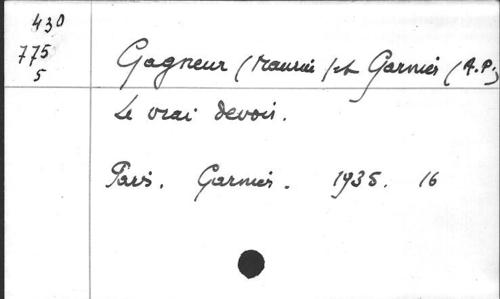 430
775
5
Gagneur (Maurice) et Garnier (A.P.)
Le vrai devoir.
Paris. Garnier. 1935. 16